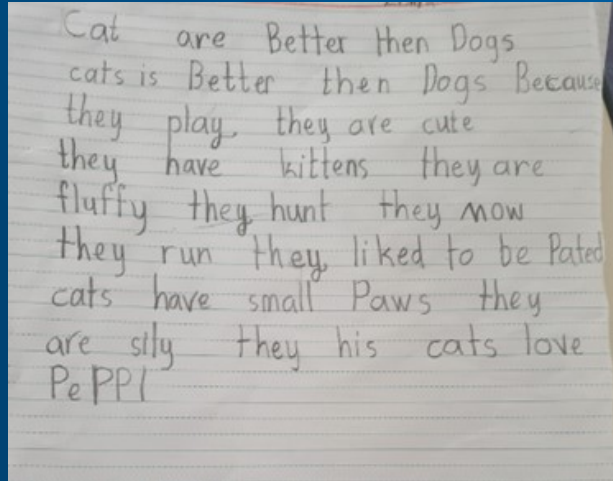 Cat are Better then Dogs
cats is Better then Dogs Because
they play. they are cute
they have kittens they are
fluffy they hunt they mow
they run they liked to be Pated
cats have small Paws they
are sily they his cats love
PePPl